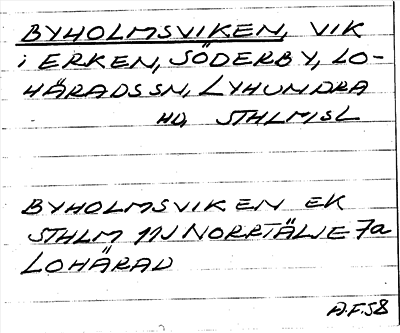 BYHOLMSVIKEN, VIK
i ERKEN, SÖDERBY, LO-
HÄRADS SN, LYHUNDRA
HD, STHLMSL
BYHOLMSVIKEN EK
STHLM 11J NORRTÄLJE 7a
LOHÄRAD
A.F.58